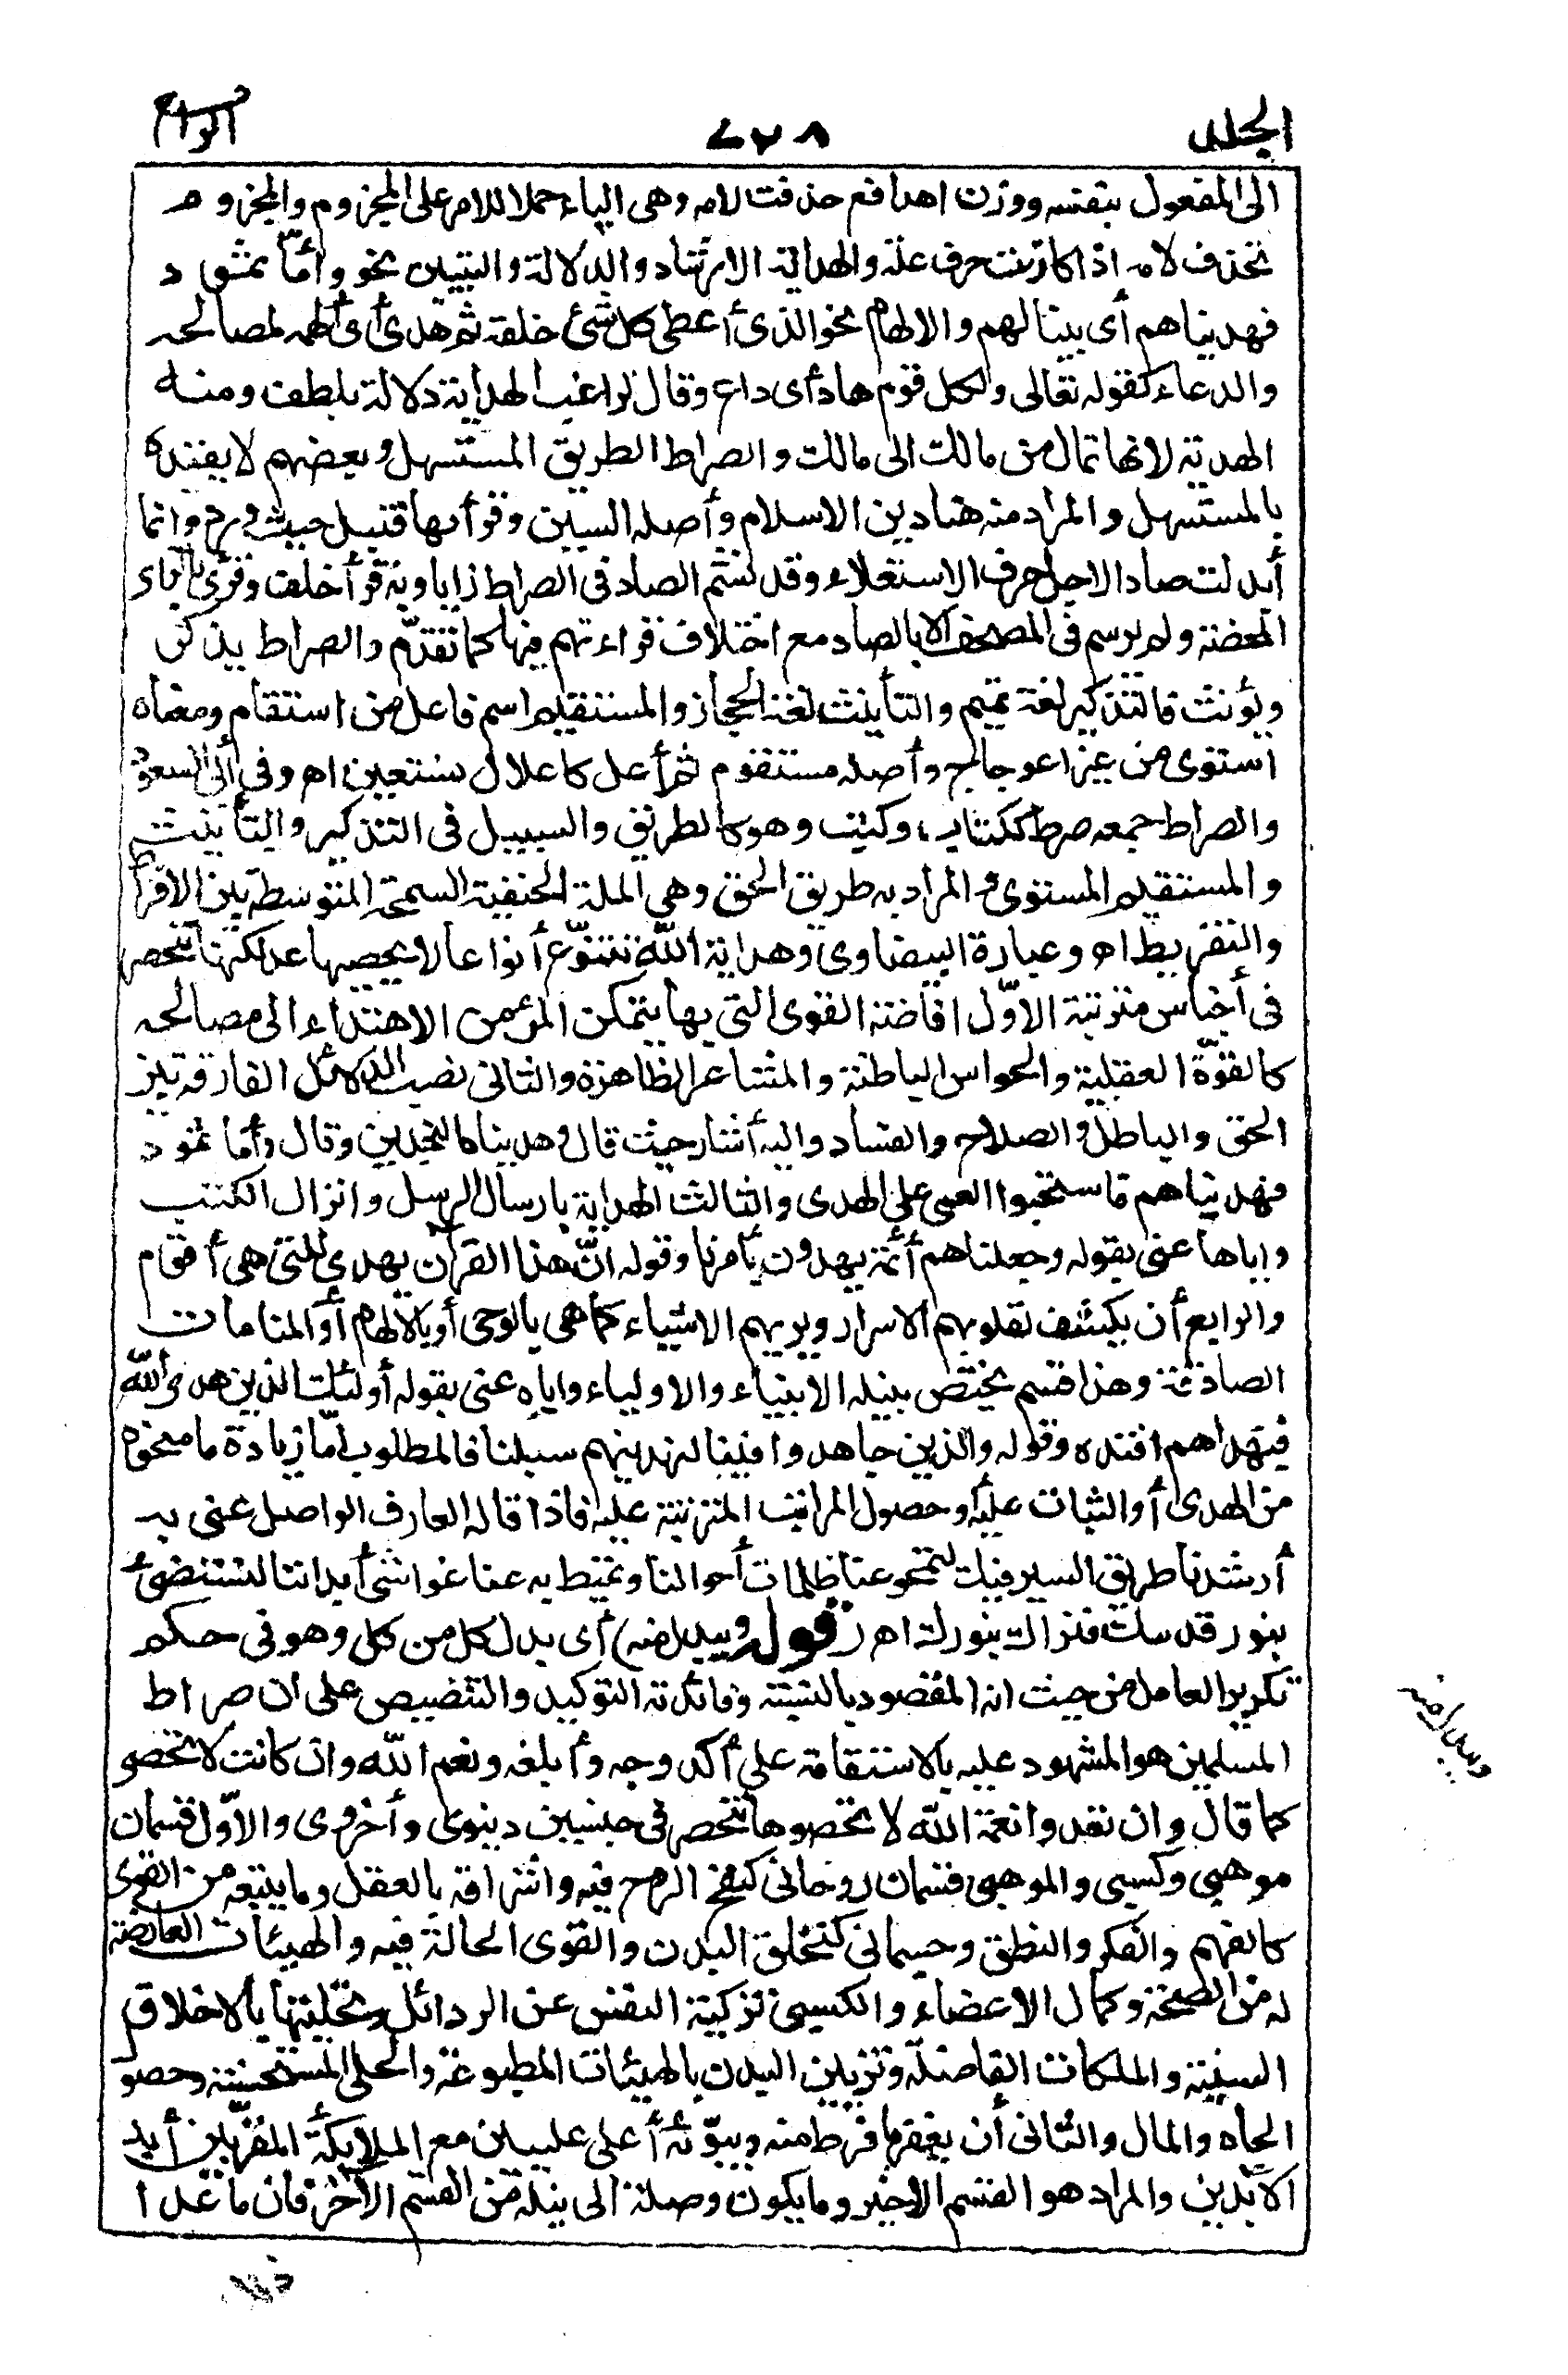 الجلد
٦٢٨
الرابع
الى المفعول بنفسه ووزن اهدافع حذفت لامه وهى الياء حملا للامر على المجزوم والمجزوم
تحذف لامه اذا كانت حرف علة والهداية الارشاد والدلالة والتبيين نحو وأمّا ثمود
فهديناهم أى بينا لهم والالهام نحو الذى أعطى كل شئ خلقه ثم هدى أى ألهمه لمصالحه
والدعاء كقوله تعالى ولكل قوم هاد أى داع وقال الراغب الهداية دلالة بلطف ومنه
الهدية لانها تمال من مالك الى مالك والصراط الطريق المستسهل وبعضهم لا يقيده
بالمستسهل والمراد منه هنا دين الاسلام وأصله السين وقرأ بها قنبل حيث ورد وانما
أبدلت صادا لاجل حرف الاستعلاء وقد تشم الصاد فى الصراط زايا وبه قرأ خلف وقرئ بالزاى
المحضة ولم ترسم فى المصحف الا بالصاد مع اختلاف قراءتهم فيها كما تقدّم والصراط يذكر
ويؤنث فالتذكير لغة تميم والتأنيث لغة الحجاز والمستقيم اسم فاعل من استقام ومعناه
استوى من غير اعوجاج وأصله مستقوم ثم أعل كاعلال نستعين اه وفى أبى السعود
والصراط جمعه صرط ككتاب وكتب وهو كالطريق والسبيل فى التذكير والتأنيث
والمستقيم المستوى والمراد به طريق الحق وهى الملة الحنفية السمحة المتوسطة بين الافراط
والتفريط اه وعبارة البيضاوى وهداية الله تتنوّع أنواعا لا يحصيها عد لكنها تنحصر
فى أجناس مترتبة الاوّل افاضة القوى التى بها يتمكن المرء من الاهتداء الى مصالحه
كالقوّة العقلية والحواس الباطنة والمشاعر الظاهرة والثانى نصب الدلائل الفارقة بين
الحق والباطل والصلاح والفساد واليه أشار حيث قال وهديناه النجدين وقال وأما ثمود
فهديناهم فاستحبوا العمى على الهدى والثالث الهداية بارسال الرسل وانزال الكتب
واياها عنى بقوله وجعلناهم أئمة يهدون بأمرنا وقوله انّ هذا القرآن يهدى للتى هى أقوم
والرابع أن يكشف لقلوبهم الاسرار ويريهم الاشياء كما هى بالوحى أو بالالهام أو المنامات
الصادقة وهذا قسم يختص بنيله الانبياء والاولياء واياه عنى بقوله أولئك الذين هدى الله
فبهداهم اقتده وقوله والذين جاهدوا فينا لنهدينهم سبلنا فالمطلوب امّا زيادة ما منحوه
من الهدى أو الثبات عليه أو حصول المراتب المترتبة عليه فاذا قاله العارف الواصل عنى به
أرشدنا طريق السير فيك لتمحو عنا ظلمات أحوالنا وتميط به عنا غواشى أبداننا لنستضئ
بنور قدسك فنراك بنورك اه (قوله ويبدل منه) أى بدل كل من كل وهو فى حكم
تكرير العامل من حيث انه المقصود بالنسبة وفائدته التوكيد والتنصيص على ان صراط
المسلمين هو المشهود عليه بالاستقامة على أكد وجه وأبلغه ونعم الله وان كانت لا تحصى
كما قال وان تعدوا نعمة الله لا تحصوها تنحصر فى جنسين دنيوى وأخروى والاوّل قسمان
موهبى وكسبى والموهبى قسمان روحانى كنفخ الروح فيه واشراقه بالعقل وما يتبعه من القوى
كالفهم والفكر والنطق وجسمانى كتخلق البدن والقوى الحالة فيه والهيئات العارضة
له من الصحة وكمال الاعضاء والكسبى تزكية النفس عن الرذائل وتحليتها بالاخلاق
السنية والملكات الفاضلة وتزيين البدن بالهيئات المطبوعة والحلى المستحسنة وحصول
الجاه والمال والثانى أن يغفر ما فرط منه ويبوّئه أعلى عليين مع الملائكة المقرّبين أبد
الآبدين والمراد هو القسم الاخير وما يكون وصلة الى نيله من القسم الآخر فان ما عدا
ويبدل منه